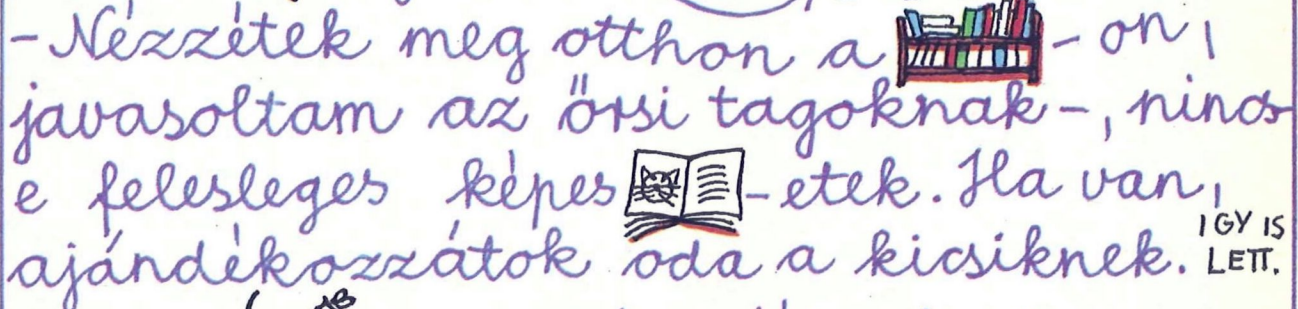 - Nézzétek meg otthon a - on,
javasoltam az őrsi tagoknak -, nincs-
e felesleges képes -etek. Ha van,
ajándékozzátok oda a kicsiknek. IGY IS
LETT.